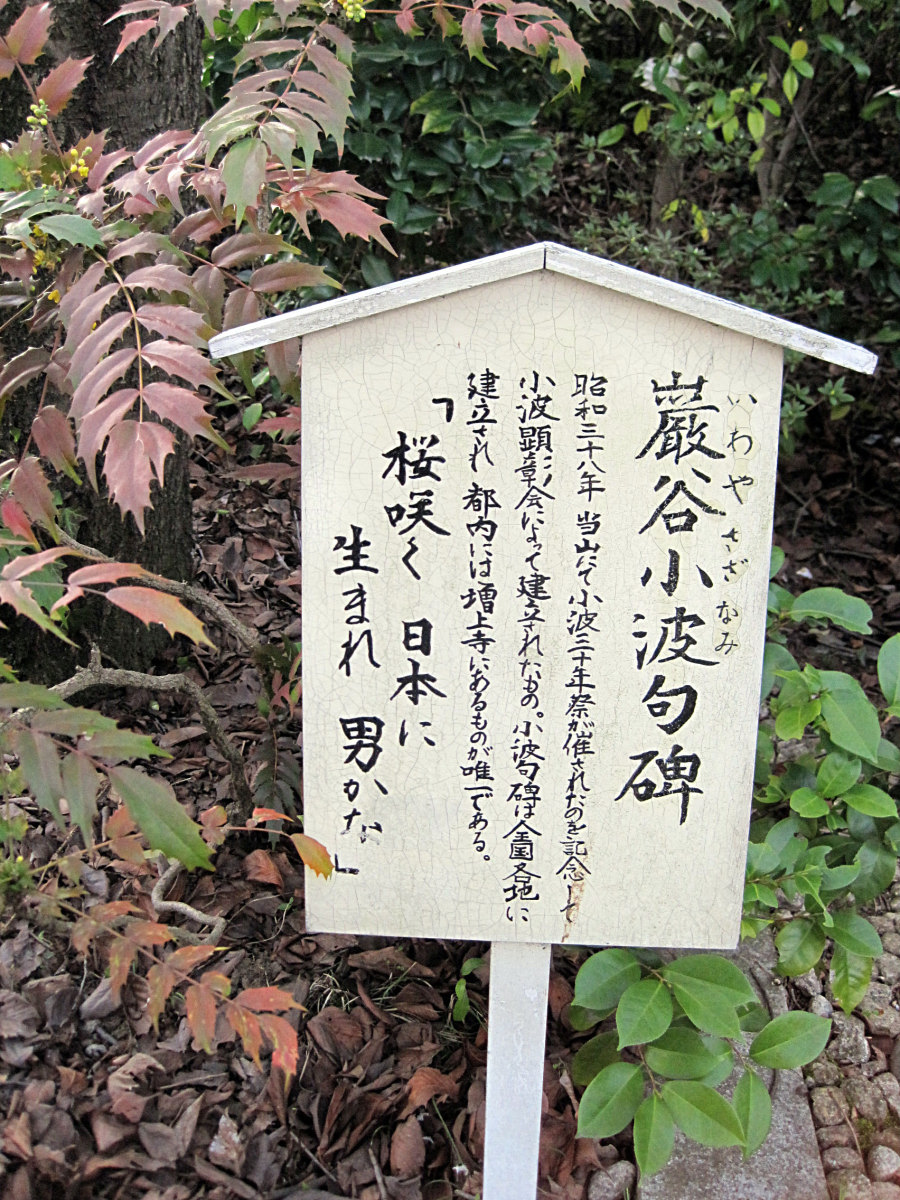 いわやさざなみ
巖谷小波句碑
昭和三十八年 当山にて小波三十年祭が催されたのを記念して
小波顕彰会によって建立されたもの。小波句碑は全国各地に
建立され 都内には増上寺にあるものが唯一である。
「桜咲く 日本に
生まれ 男かな」